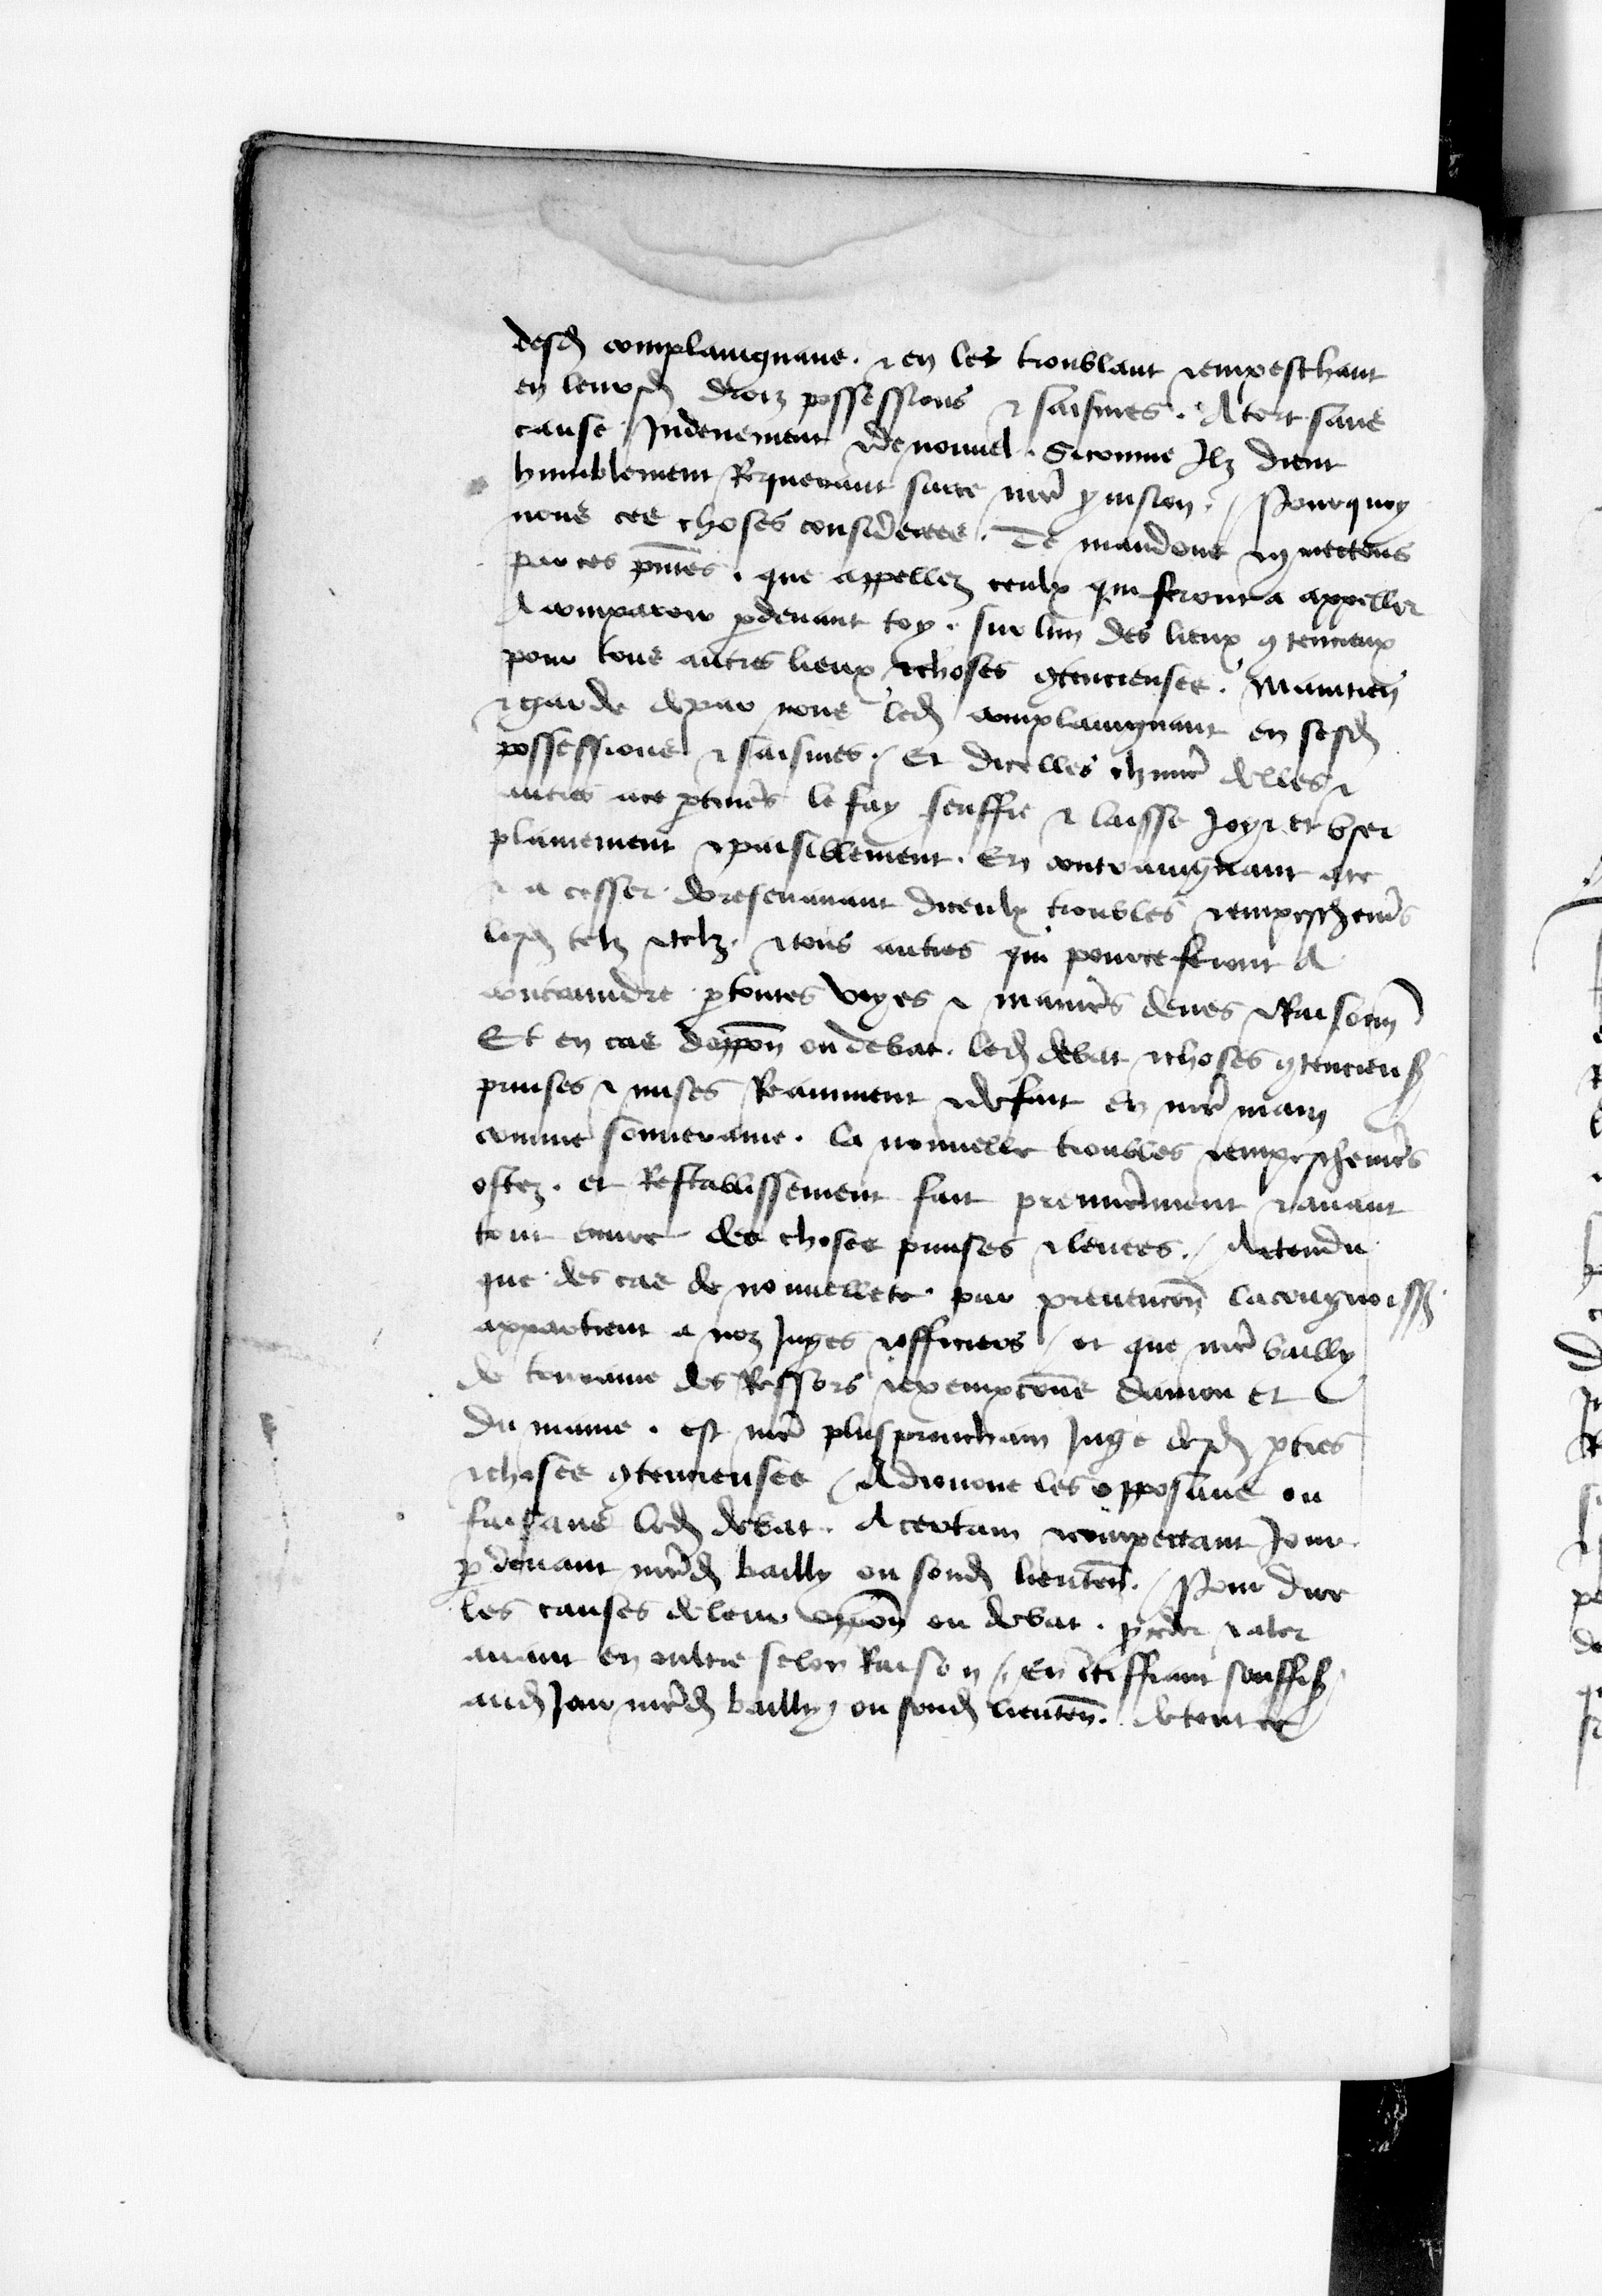 desd complaignans . et en les troublant et empeschant
en leursd droiz possessions et saisines . A tort sans
cause Indeuement et de nouvel . Sicomme Ilz dient
humblement Requerant sur ce nre provision . / Pourquoy
nous ces choses considerees . Te mandons et commettons
par ces pntes . que appellez ceulx qui seront a appeller
A comparoir pardevant toy . sur lun des lieux contencieux
pour tous autres lieux et choses contencieuses . Maintien
et garde de par nous led complaignant en sesd
possessions et saisines . / Et dicelles chune delles et
autres a ce pertinens le fay seuffre et laisse Joyr et user
plainement et paisiblement . En contraignant a ce
et a cesser doresenavant diceulx troubles et empeschemens
lesd telz et telz . et tous autres qui pour ce seront A
contraindre par toutes voyes et manieres deues et Raisonn
Et en cas doppon ou debat . led debat et choses contencieus
prinses et mises Reaument et de fait en nre main
comme souveraine . la nouvellete troubles et empeschemens
ostez . et Restablissement fait premierement et avant
tout euvre des choses prinses et levees . / Attendu
que des cas de nouvellete . par prevencon la congnoiss
appartient a noz Juges et officiers / et que nre bailly
de touraine des Ressors et exempcons danjou et
du maine . est nre plus prouchain Juge desd parties
et choses contencieuses / Adjourne les opposans ou
faisans led debat . A certain et compectant Jour .
pardevant nred bailly ou sond lieuten . / Pour dire
les causes de leur oppon ou debat . proceder et aler
avant en oultre selon Raison / . En certiffiant souffis
aud Jour nred bailly / ou sond lieuten . de tout ce